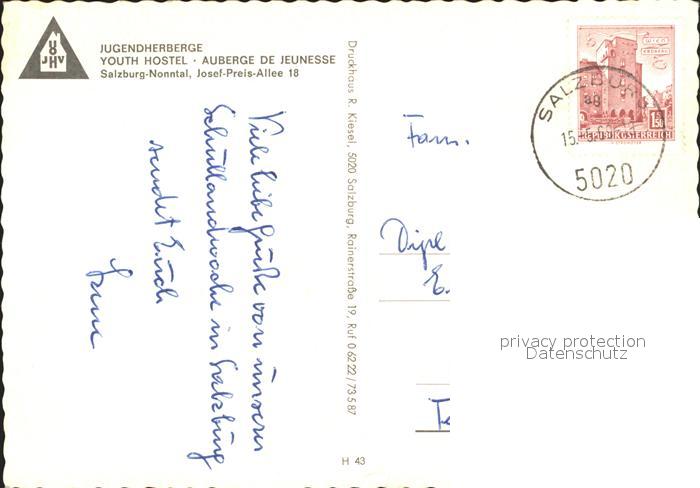 JUHV
JUGENDHERBERGE
YOUTH HOSTEL · AUBERGE DE JEUNESSE
Salzburg-Nonntal, Josef-Preis-Allee 18
Viele liebe Grüße von unserer
Schullandwoche in Salzburg
sendet Euch
Druckhaus R. Kiesel, 5020 Salzburg, Rainerstraße 19, Ruf 0 62 22 / 73 5 87
H 43
WIEN
ERDBERG
1.50
REPUBLIK ÖSTERREICH
SALZBURG
5020
Fam.
Dipl
E.
privacy protection
Datenschutz